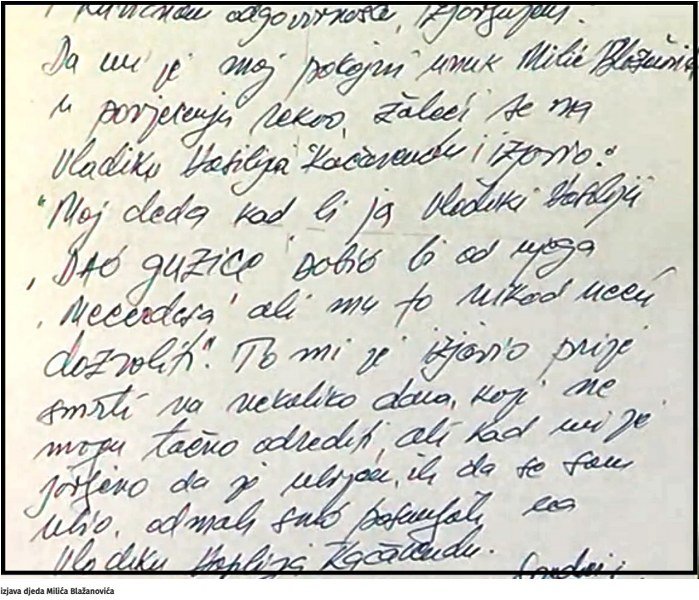 i krivičnom odgovornošću, izjavljujem:
Da mi je moj pokojni unuk Milić Blažanović
u povjerenju rekao, žaleći se na
Vladiku Vasilija Kačavendu i izjavio:
"Moj deda kad bi ja Vladiki Vasiliji
"DAO GUZICE" dobio bi od njega
"Mecerdesa" ali mu to nikad neću
dozvoliti". To mi je izjavio prije
smrti na nekoliko dana, koji ne
mogu tačno odrediti, ali kad mi je
javljeno da je ubijen, ili da se sam
ubio, odmah smo posumljali na
Vladiku Vasilija Kačavendu.
izjava djeda Milića Blažanovića